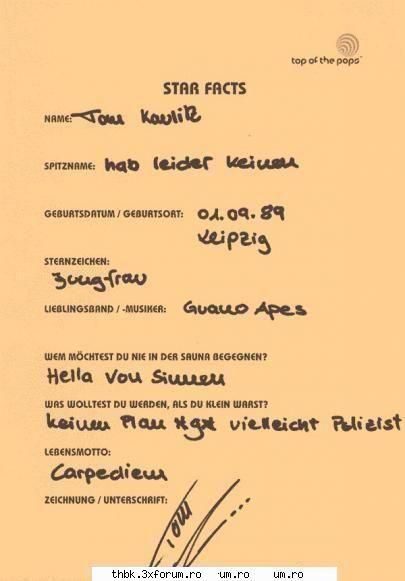 top of the pops™
STAR FACTS
NAME: Tom Kaulitz
SPITZNAME: hab leider keinen
GEBURTSDATUM / GEBURTSORT: 01.09.89
Leipzig
STERNZEICHEN:
Jungfrau
LIEBLINGSBAND / -MUSIKER: Guano Apes
WEM MÖCHTEST DU NIE IN DER SAUNA BEGEGNEN?
Hella Von Sinnen
WAS WOLLTEST DU WERDEN, ALS DU KLEIN WARST?
keinen Plan *g* vielleicht Polizist
LEBENSMOTTO:
Carpediem
ZEICHNUNG / UNTERSCHRIFT:
Tom
thbk.3xforum.ro um.ro um.ro